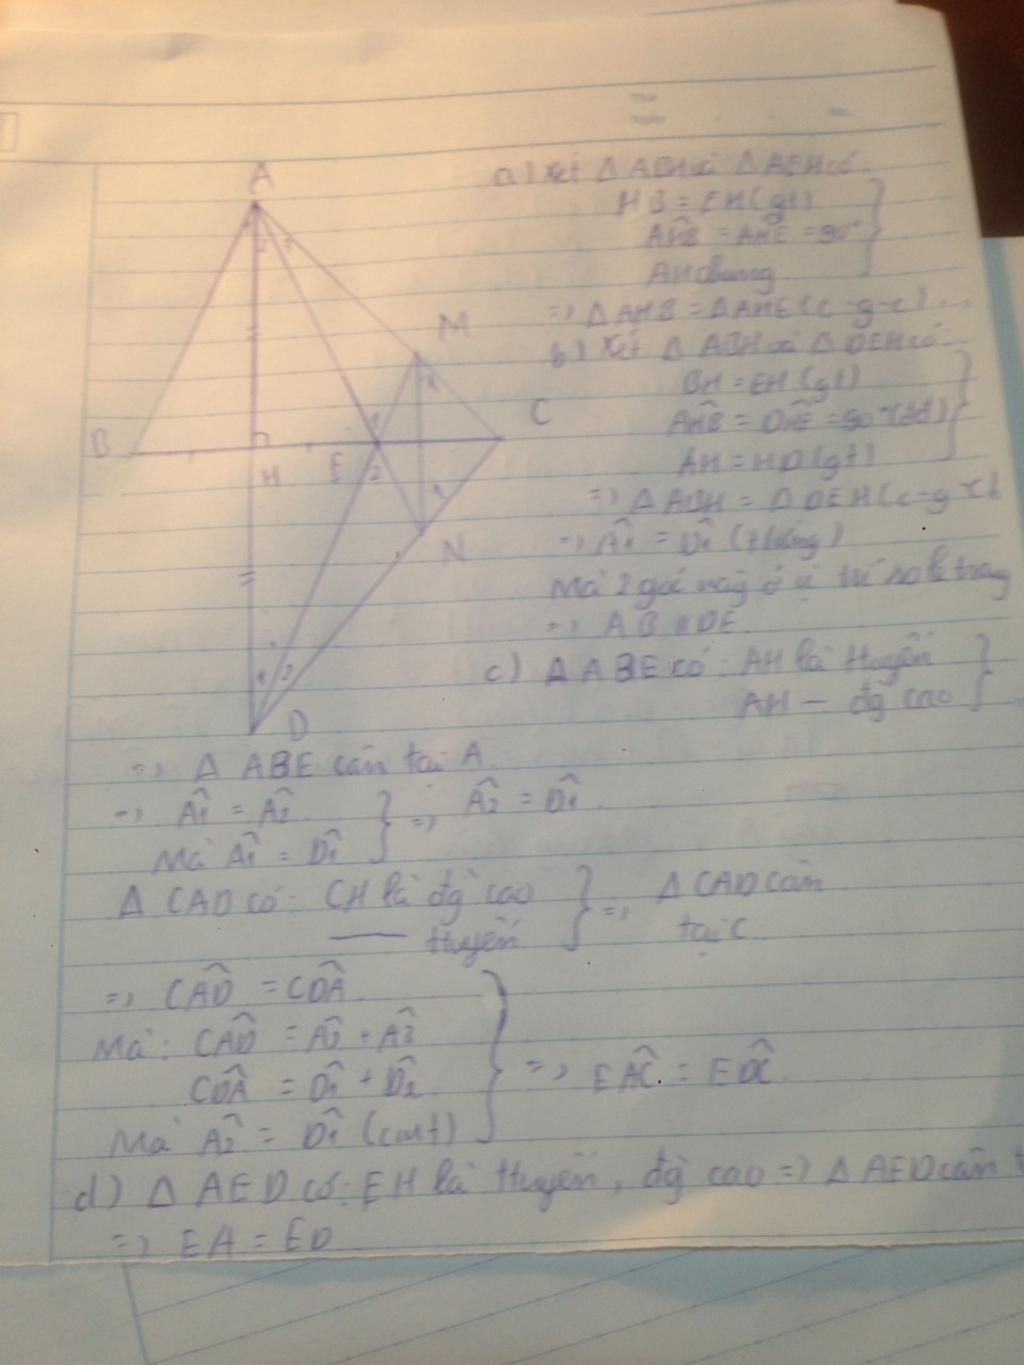 A
M
B
C
H
E
2
N
1
2
D
a) Xét Δ ABH và Δ AEH có:
HB = EH (gt)
AĤB = AĤE = 90°
AH chung
=> Δ AHB = Δ AHE (c-g-c)
b) Xét Δ ABH và Δ DEH có:
BH = EH (gt)
AĤB = DĤE = 90° (đđ)
AH = HD (gt)
=> Δ ABH = Δ DEH (c-g-c)
=> Â1 = D̂1 (t/ứng)
Mà 2 góc này ở vị trí so le trong
=> AB // DE
c) Δ ABE có: AH là tuyến
AH — đg cao
=> Δ ABE cân tại A.
=> Â1 = Â2 => Â2 = D̂1
Mà Â1 = D̂1
Δ CAD có: CH là đg cao => Δ CAD cân
— tuyến tại C
=> CÂD = CD̂A
Mà: CÂD = Â2 + Â3
CD̂A = D̂1 + D̂2 => EÂC = ED̂C
Mà Â2 = D̂1 (cmt)
d) Δ AED có: EH là tuyến, đg cao => Δ AED cân
=> EA = ED